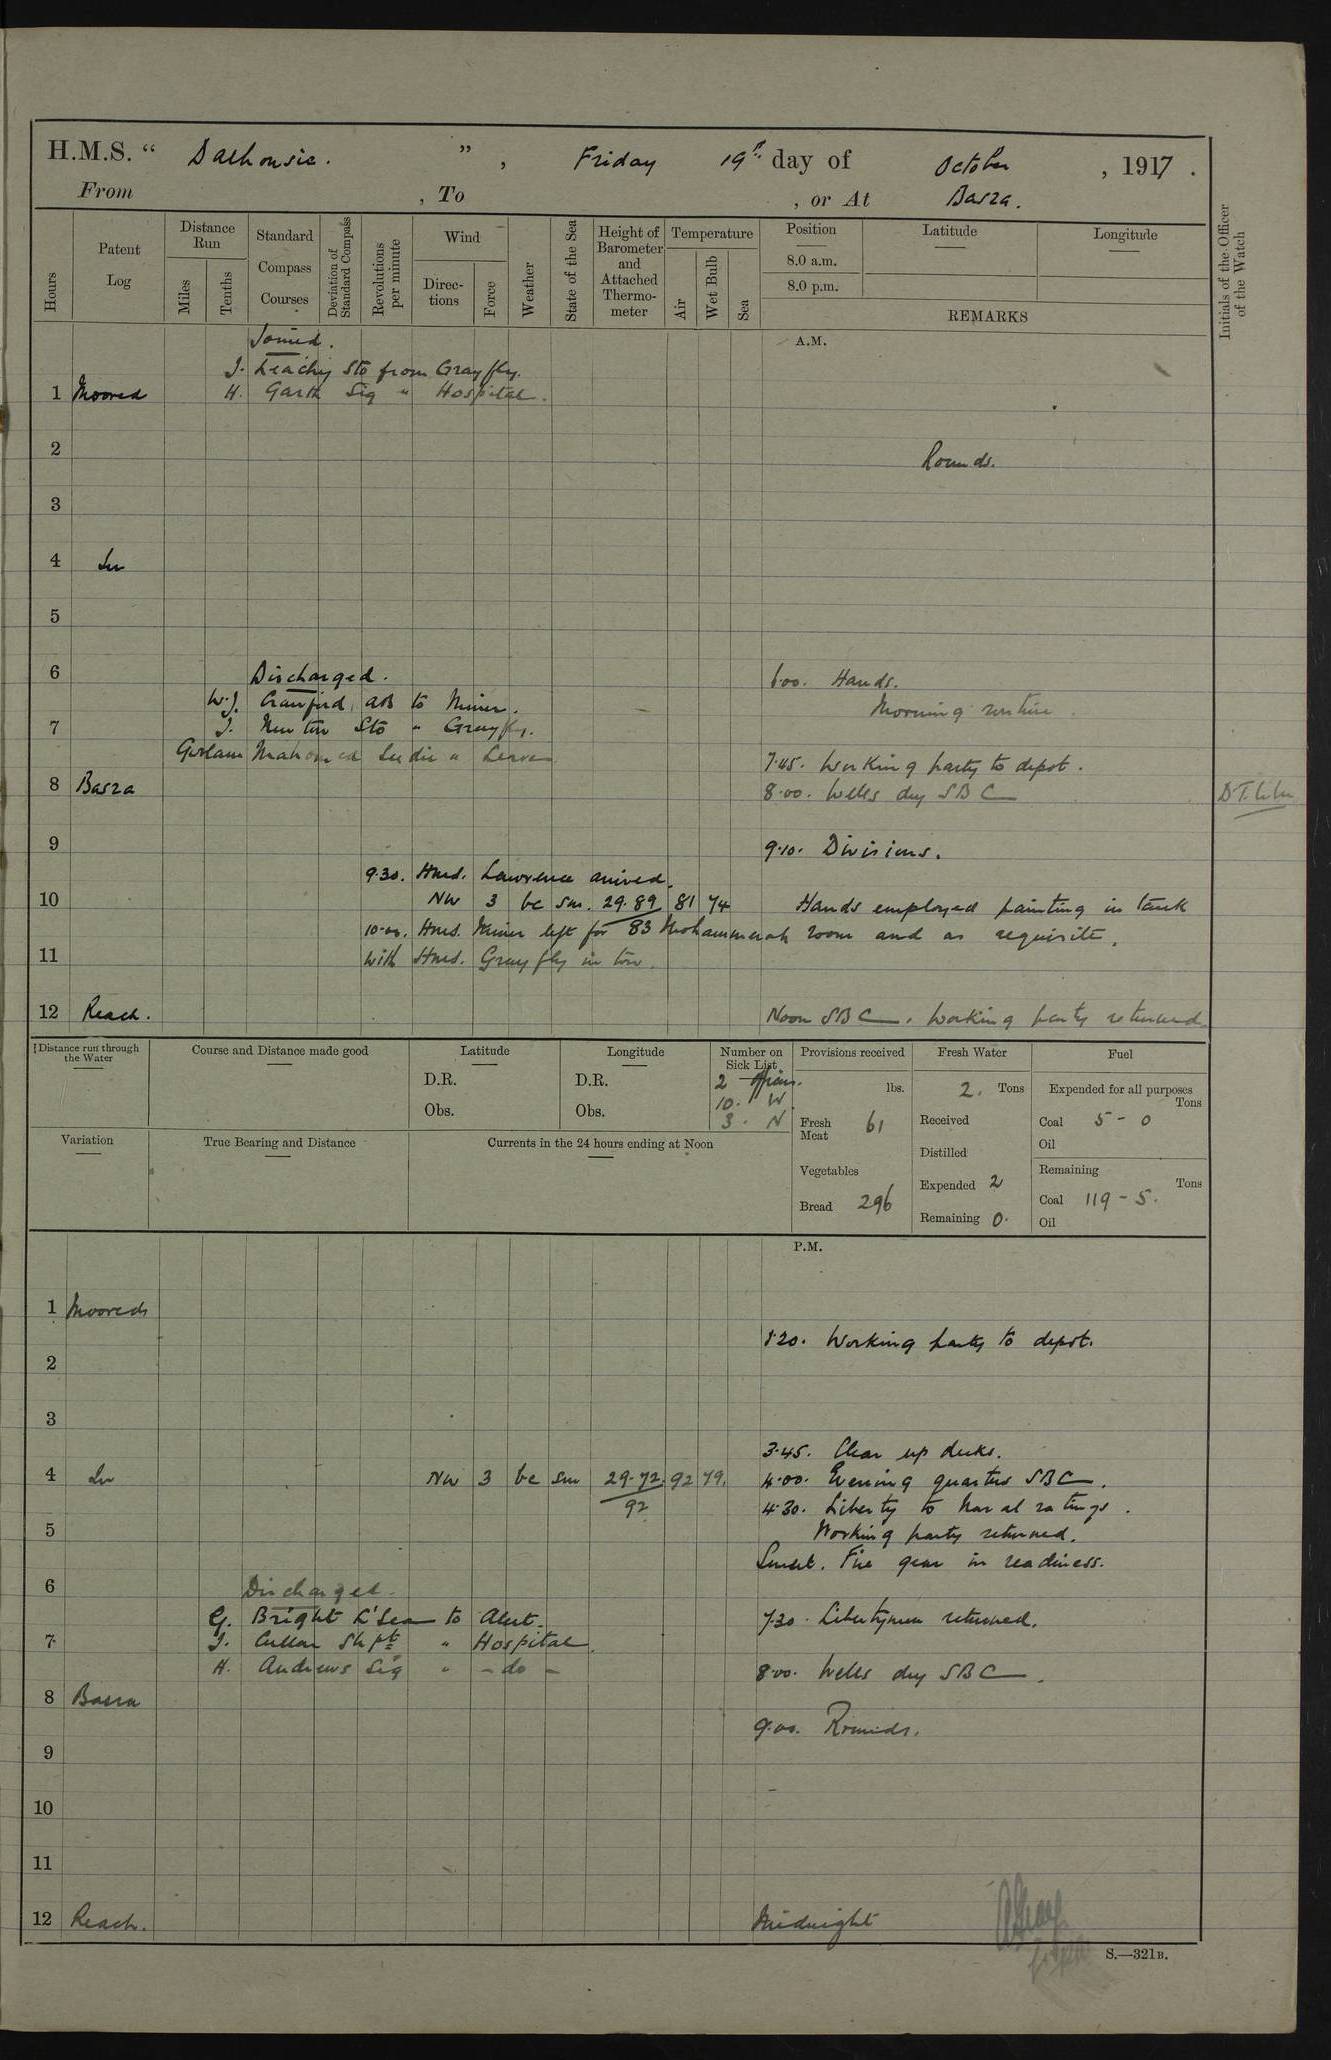 H.M.S. “ Dalhousie. ” , Friday 19th day of October , 1917 .
From , To , or At Basra.
Hours
Patent Log
Distance Run
Miles
Tenths
Standard Compass Courses
Deviation of Standard Compass
Revolutions per minute
Wind
Directions
Force
Weather
State of the Sea
Height of Barometer and Attached Thermometer
Temperature
Air
Wet Bulb
Sea
Position
8.0 a.m.
8.0 p.m.
Latitude
Longitude
REMARKS
Initials of the Officer of the Watch
Joined. A.M.
J. Leachy Sto from Grayfly.
1 Moored H. Garth Sig " Hospital.
2 Rounds.
3
4 In
5
6 Discharged. 6.00. Hands.
W.J. Crawford AB to Miner. Morning routine.
7 J. Newton Sto " Grayfly.
Mahomed Seedie " Leave 7.45. Working party to depot.
8 Basra 8.00. Wells dry SBC
9 9.10. Divisions.
9.30. Hms. Lawrence arrived.
10 NW 3 bc sm. 29.89 81 74 Hands employed painting in tank
10.00. Hms. Miner left for 83 Mohammerah room and as requisite.
11 with Hms. Grayfly in tow.
12 Reach. Noon SBC. Working party returned.
Distance run through the Water
Course and Distance made good
Latitude
D.R.
Obs.
Longitude
D.R.
Obs.
Number on Sick List
2
10. W.
3. N
Provisions received
lbs.
Fresh Meat 61
Vegetables
Bread 296
Fresh Water
2. Tons
Received
Distilled
Expended 2
Remaining 0.
Fuel
Expended for all purposes
Tons
Coal 5 - 0
Oil
Remaining
Tons
Coal 119 - 5.
Oil
Variation
True Bearing and Distance
Currents in the 24 hours ending at Noon
P.M.
1 Moored
1.20. Working party to depot.
2
3
3.45. Clear up decks.
4 In NW 3 bc sm 29.72 92 79. 4.00. Evening quarters SBC.
92 4.30. Liberty to Naval ratings.
5 Working party returned.
Sunset. Fire gear in readiness.
6 Discharged.
G. Bright L'Sea to Alert. 7.30. Libertymen returned.
7 J. Cullen Shpt " Hospital.
H. Andrews Sig " - do - 8.00. Wells dry SBC.
8 Basra
9.00. Rounds.
9
10
11
12 Reach. Midnight
S.—321B.